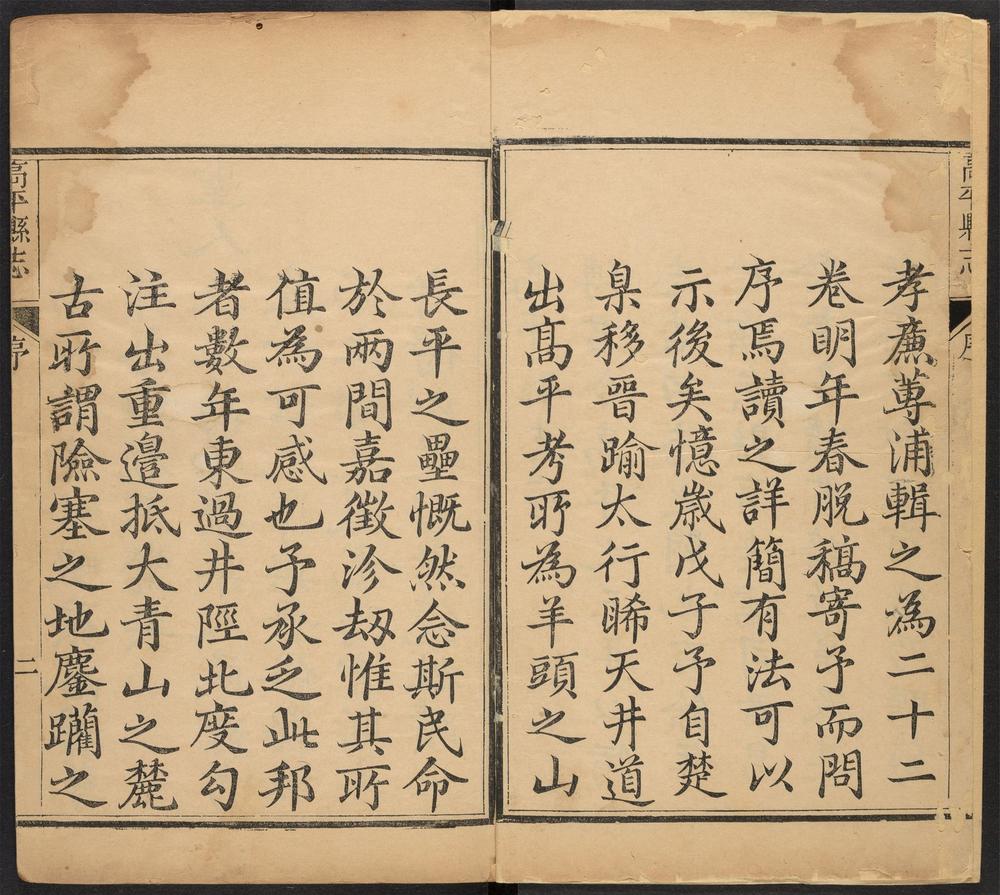 高平縣志
序
孝廉蓴浦輯之為二十二
卷明年春脫稿寄予而問
序焉讀之詳簡有法可以
示後矣憶歲戊子予自楚
臬移晉踰太行睎天井道
出髙平考所為羊頭之山
長平之壘慨然念斯民命
於兩間嘉徵沴刼惟其所
值為可感也予承乏此邦
者數年東過井陘北度勾
注出重邉抵大青山之麓
古所謂險塞之地鏖躪之
高平縣志
序
二